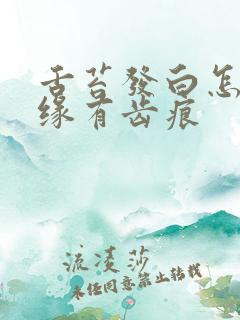 舌苔發白怎
緣有齿痕
流凌莎
未经同意禁止转载